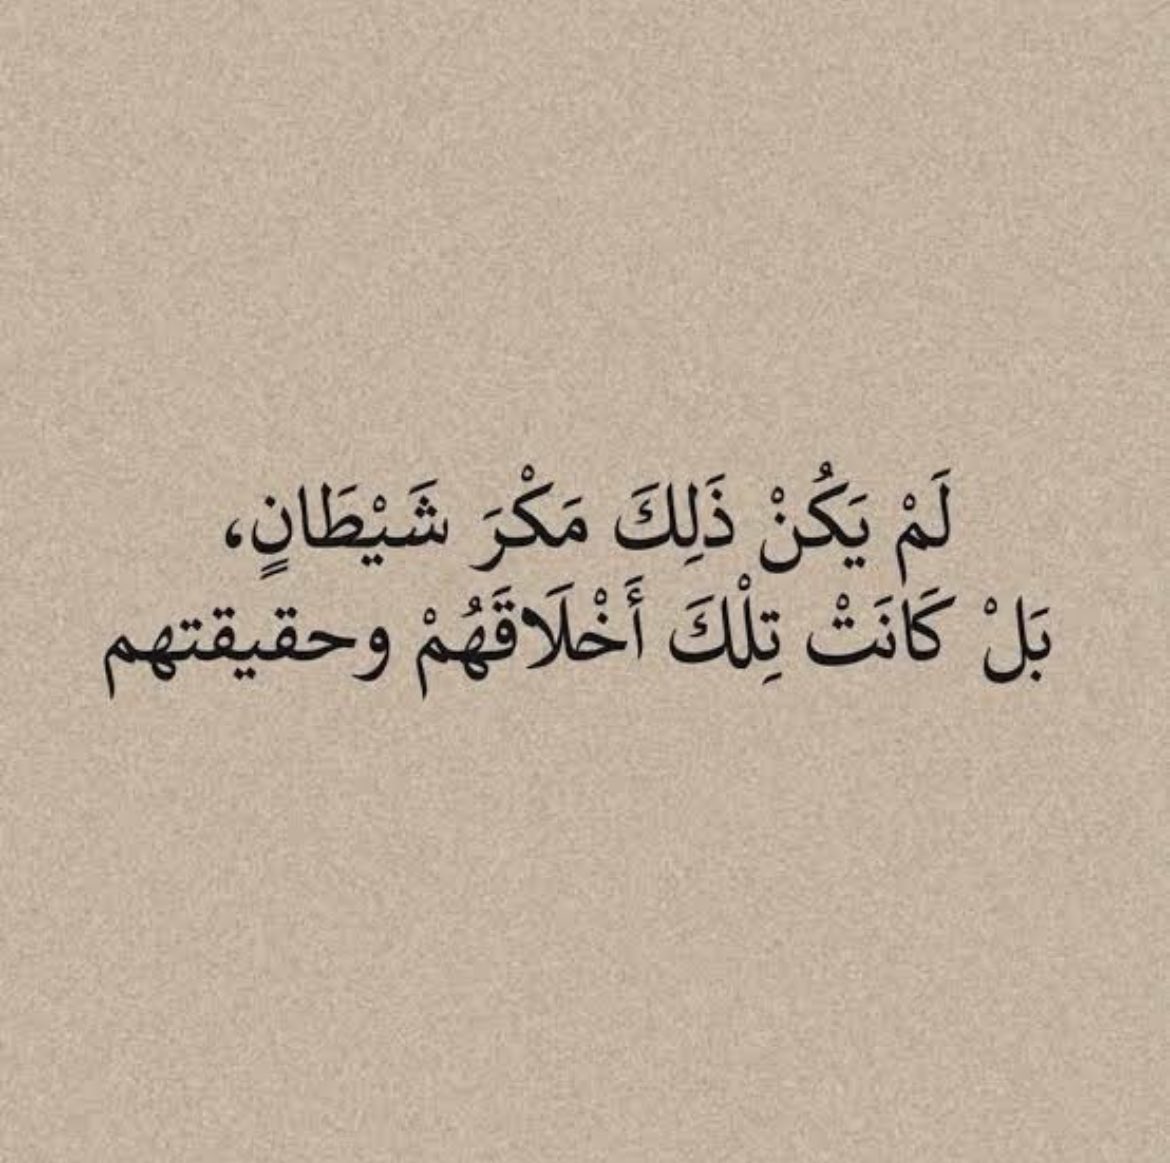 لَمْ يَكُنْ ذَلِكَ مَكْرَ شَيْطَانٍ،
بَلْ كَانَتْ تِلْكَ أَخْلَاقَهُمْ وحقيقتهم